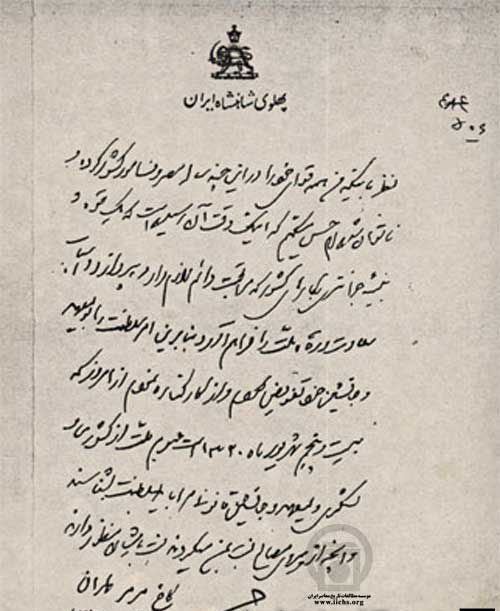 پهلوی شاهنشاه ایران
نظر باینکه من همه قوای خود را در این چند ساله مصروف امور کشور کرده و
ناتوان شده‌ام حس میکنم که اینک وقت آن رسیده است که یک قوه و
بنیه جوانتری بکارهای کشور که مراقبت دائم لازم دارد بپردازد و اسباب
سعادت و رفاه ملت را فراهم آورد بنابراین امور سلطنت را بولیعهد
و جانشین خود تفویض کردم و از کار کناره نمودم از امروز که
بیست و پنجم شهریور ماه ۱۳۲۰ است عموم ملت از کشوری و
لشکری ولیعهد و جانشین قانونی مرا باید بسلطنت بشناسند
و آنچه از پیروی مصالح نسبت بمن میکردند نسبت بایشان منظور دارند
کاخ مرمر تهران
موسسه مطالعات تاریخ معاصر ایران
www.iichs.org